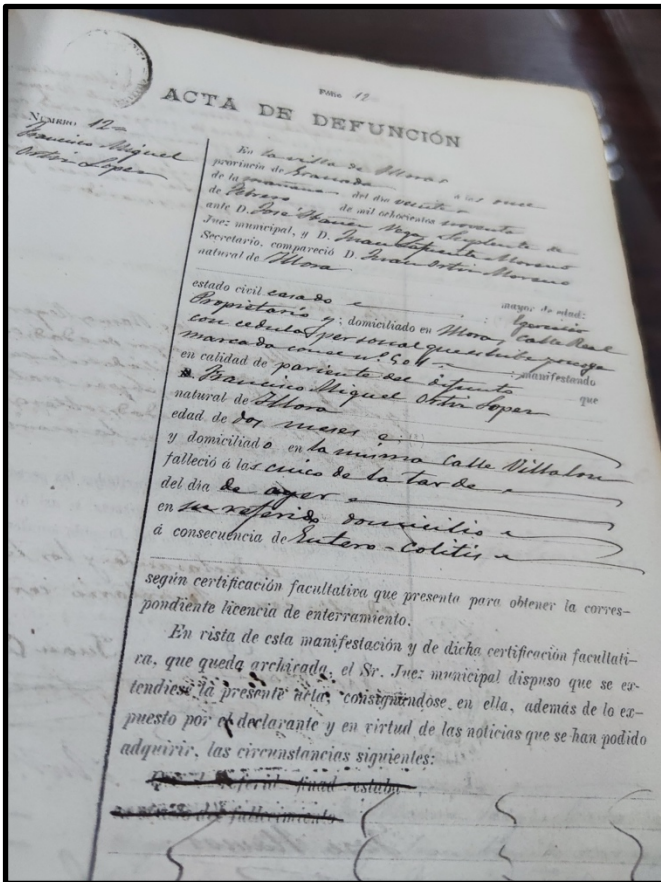 Folio 12
ACTA DE DEFUNCIÓN
NÚMERO 12
Francisco Miguel
Ortin Lopez
En la villa de Illora
provincia de Granada á las once
de la mañana del dia veinte
de Febrero de mil ochocientos noventa
ante D. José Vega Suplente de
Juez municipal, y D. Juan Moreno
Secretario, compareció D. Juan Ortin Moreno
natural de Illora
mayor de edad:
estado civil casado : Egercicio
Propietario y : domiciliado en Illora, Calle Real
con cedula personal que exhibe y recoge
marcada con el nº : manifestando
en calidad de pariente del difunto que
D. Francisco Miguel Ortin Lopez
natural de Illora
edad de dos meses
y domiciliado en la misma Calle Villalon
falleció á las cinco de la tarde
del dia de ayer
en su referido domicilio
á consecuencia de Entero-Colitis
según certificación facultativa que presenta para obtener la corres-
pondiente licencia de enterramiento.
En vista de esta manifestación y de dicha certificación facultati-
va, que queda archivada, el Sr. Juez municipal dispuso que se ex-
tendiese la presente acta, consignándose en ella, además de lo ex-
puesto por el declarante y en virtud de las noticias que se han podido
adquirir, las circunstancias siguientes:
Que el referido finad estaba
del fallecimiento